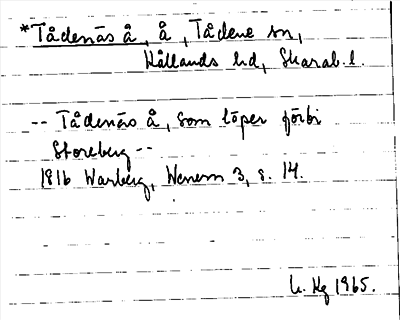 *Tådenäs å, å, Tådene sn,
Kållands hd, Skarab. l.
-- Tådenäs å, som löper förbi
Storeberg --
1816 Warberg, Wenern 3, s. 14.
1965.